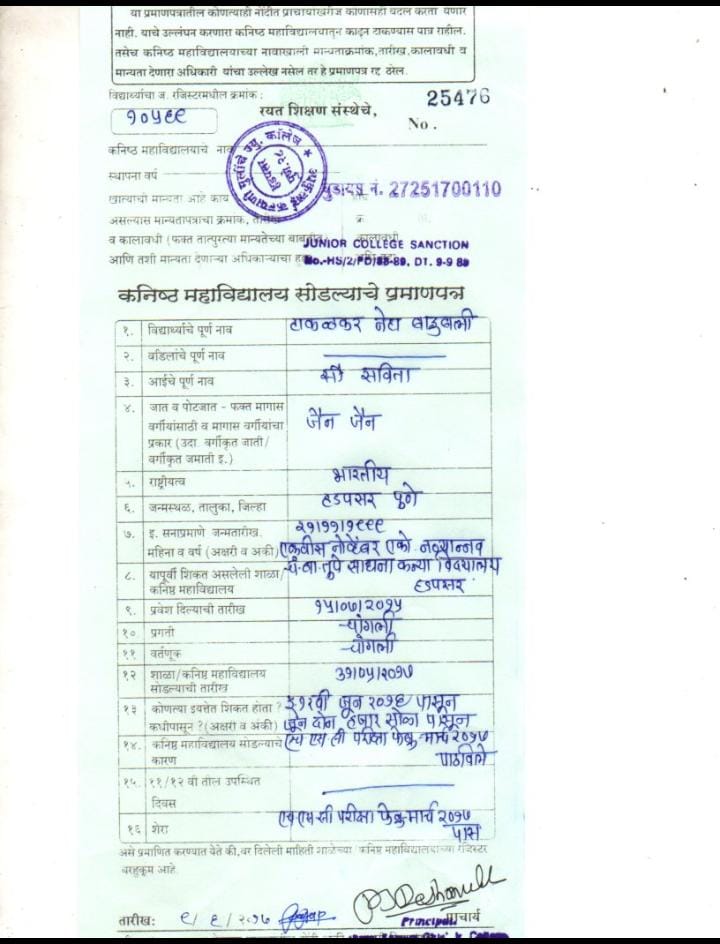 या प्रमाणपत्रातील कोणत्याही नोंदीत प्राचार्याखेरीज कोणासही बदल करता येणार
नाही. याचे उल्लंघन करणारा कनिष्ठ महाविद्यालयातून काढून टाकण्यास पात्र राहील.
तसेच कनिष्ठ महाविद्यालयाच्या नावाखाली मान्यताक्रमांक, तारीख, कालावधी व
मान्यता देणारा अधिकारी यांचा उल्लेख नसेल तर हे प्रमाणपत्र रद्द ठरेल.
विद्यार्थ्याचा ज. रजिस्टरमधील क्रमांक :
25476
१०५९९
रयत शिक्षण संस्थेचे,
No.
कनिष्ठ महाविद्यालयाचे नाव
स्थापना वर्ष
युडायस नं. 27251700110
खात्याची मान्यता आहे काय
असल्यास मान्यतापत्राचा क्रमांक, तारीख
व कालावधी (फक्त तात्पुरत्या मान्यतेच्या बाबतीत) कालावधी
JUNIOR COLLEGE SANCTION
आणि तशी मान्यता देणाऱ्या अधिकाऱ्याचा हुद्दा
No.-HS/2/PD/88-89, DT. 9-9 89
कनिष्ठ महाविद्यालय सोडल्याचे प्रमाणपत्र
१. विद्यार्थ्याचे पूर्ण नाव टाकळकर नेहा बाहुबली
२. वडिलांचे पूर्ण नाव
३. आईचे पूर्ण नाव सौ सविता
४. जात व पोटजात - फक्त मागास
वर्गीयांसाठी व मागास वर्गीयांचा जैन जैन
प्रकार (उदा. वर्गीकृत जाती/
वर्गीकृत जमाती इ.)
५. राष्ट्रीयत्व भारतीय
६. जन्मस्थळ, तालुका, जिल्हा हडपसर पुणे
७. इ. सनाप्रमाणे जन्मतारीख. २१।११।१९९९
महिना व वर्ष (अक्षरी व अंकी) एकवीस नोव्हेंबर एको. नव्यान्नव
८. यापूर्वी शिकत असलेली शाळा/ चं. बा. तुपे साधना कन्या विद्यालय
कनिष्ठ महाविद्यालय हडपसर
९. प्रवेश दिल्याची तारीख १५।०७।२०१५
१०. प्रगती चांगली
११ वर्तणूक चांगली
१२ शाळा/कनिष्ठ महाविद्यालय ३१।०५।२०१७
सोडल्याची तारीख
१३ कोणत्या इयत्तेत शिकत होता ? इ १२वी जून २०१६ पासून
कधीपासून ? (अक्षरी व अंकी) जून दोन हजार सोळा पासून
१४. कनिष्ठ महाविद्यालय सोडल्याचे एच एस सी परीक्षा फेब्रु-मार्च २०१७
कारण पाठविले
१५. ११/१२ वी तील उपस्थित
दिवस
१६ शेरा एच एस सी परीक्षा फेब्रु-मार्च २०१७
पास
असे प्रमाणित करण्यात येते की, वर दिलेली माहिती शाळेच्या/कनिष्ठ महाविद्यालयाच्या रजिस्टर
बरहुकूम आहे.
तारीख: ९/६/२०१७
Principal प्राचार्य